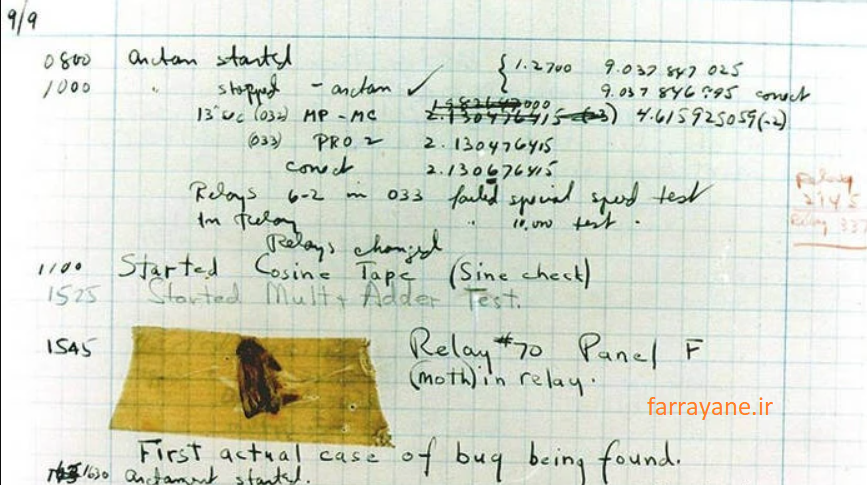 9/9
0800 Arctan started { 1.2700 9.037 847 025
1000 " stopped - arctan ✓ 9.037 846 995 correct
13"uc (032) MP - MC 2.130476415 (-3) 4.615925059(-2)
(033) PRO 2 2.130476415
correct 2.130676415
Relays 6-2 in 033 failed special speed test
In Relay " 10,000 test .
Relay
2145
Relay 337
Relays changed
1100 Started Cosine Tape (Sine check)
1525 Started Mult+ Adder Test.
1545 Relay #70 Panel F
(moth) in relay.
farrayane.ir
First actual case of bug being found.
1630 Arctangent started.